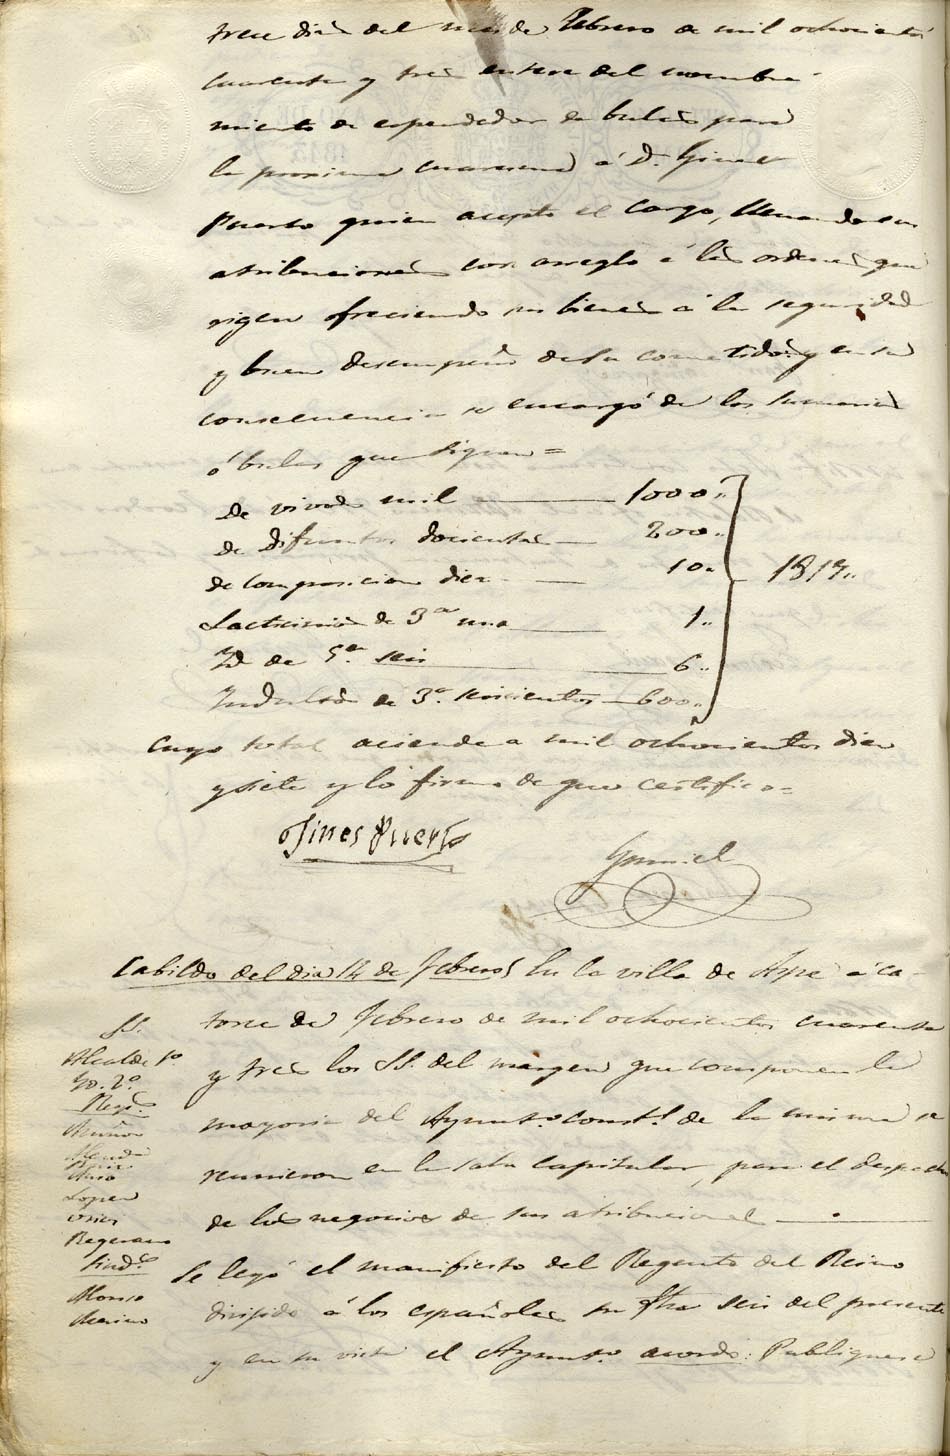 trece dias del mes de Febrero de mil ochocientos
cuarenta y tres entere del nombra-
miento de espendedor de bulas para
la proxima cuaresma á Dn. Gines
Puerto quien acepto el cargo, llenando sus
atribuciones con arreglo á las ordenes que
rigen ofreciendo sus bienes á la seguridad
y buen desempeño de su cometido: y en su
consecuencia se encargó de los sumarios
ó bulas que siguen =
De vivos mil 1000..
de Difuntos docientas 200..
de composicion diez 10..
Lacticinios de 3a una 1..
Yd de 5a. seis 6..
Yndultos de 3a. seiscientos 600..
1817..
Cuyo total aciende a mil ochocientos diez
y siete y lo firma de que certifico =
Gines Puerto
Gumiel
Cabildo del dia 14 de Febrero
En la villa de Aspe á ca-
torce de Febrero de mil ochocientos cuarenta
y tres los SS. del margen que componen la
mayoria del Ayunto. const.l de la misma se
reunieron en la sala capitular, para el despacho
de los negocios de sus atribuciones
SS.
Alcalde 1o
Yd. 2o
Regs.
Lopez
Regerano
Sinds.
Alonso
Merino
Se leyó el manifiesto del Regente del Reino
dirijido á los españoles su fha seis del presente
y en su vista el Ayunto. acordo: Publiquese